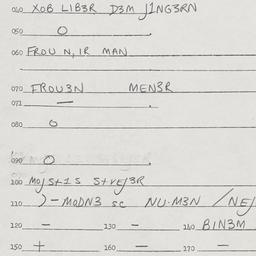 040 XOB LIB3R D3M J1NG3RN
050 O .
060 FROU N, IR MAN
070 FROU3N MEN3R
071 — .
080 O
090 O .
100 MOJSt1S StVEJ3R
110 ) - MODN3 SC NU-M3N / NEJ
120 — 130 — 140 BIN3M
150 + 160 — 170 —